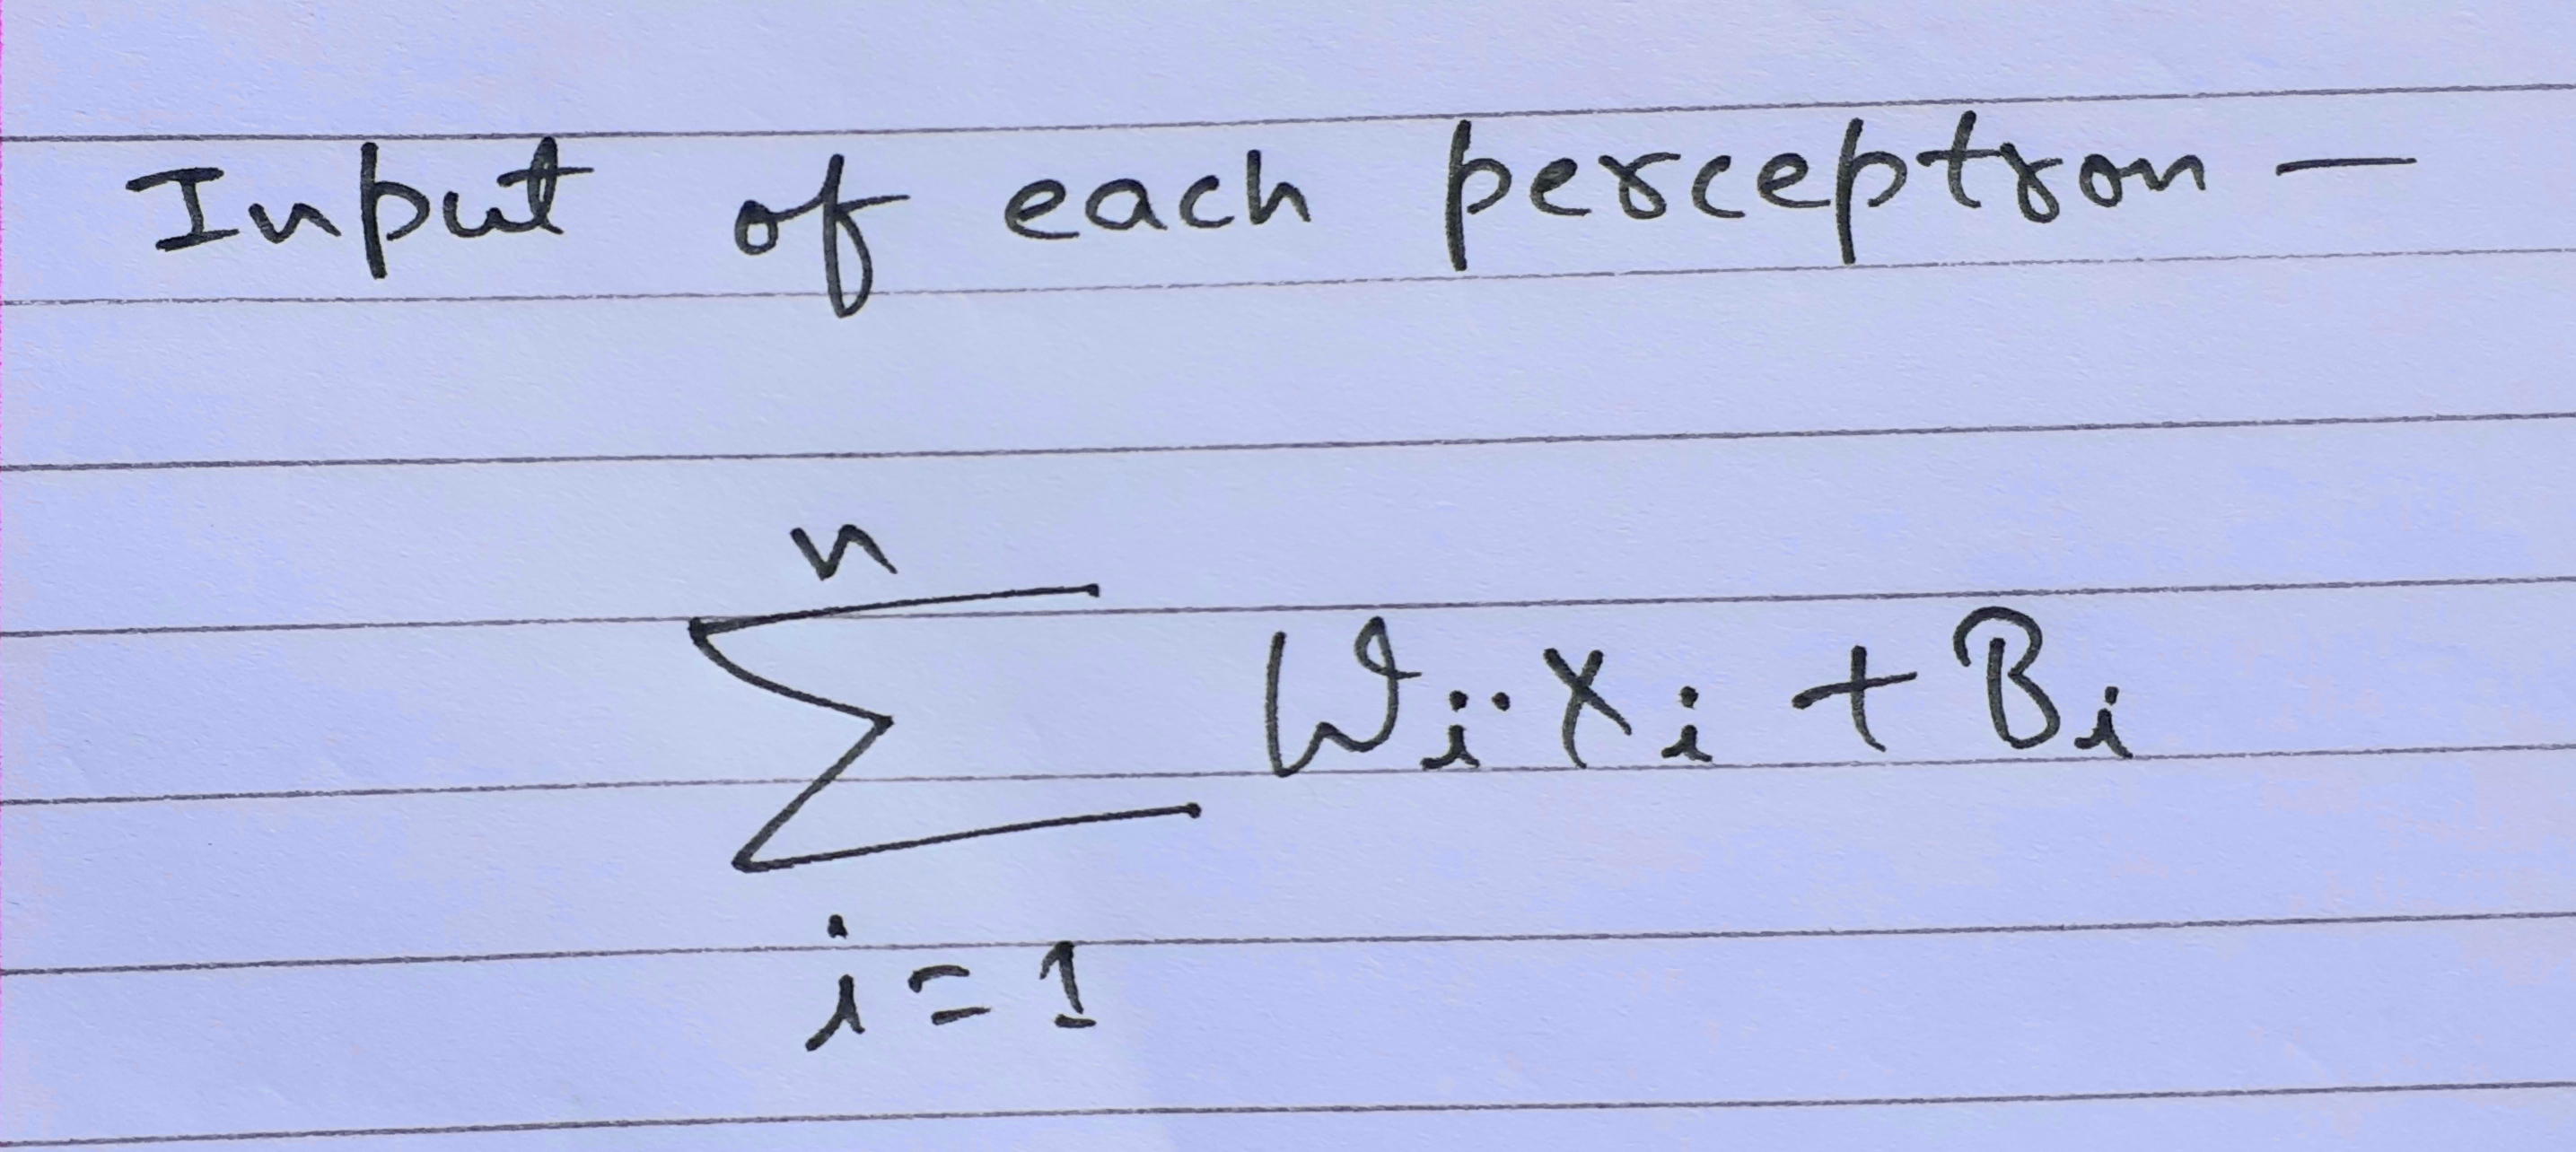 Input of each perceptron —
n
∑ Wi·Xi + Bi
i=1